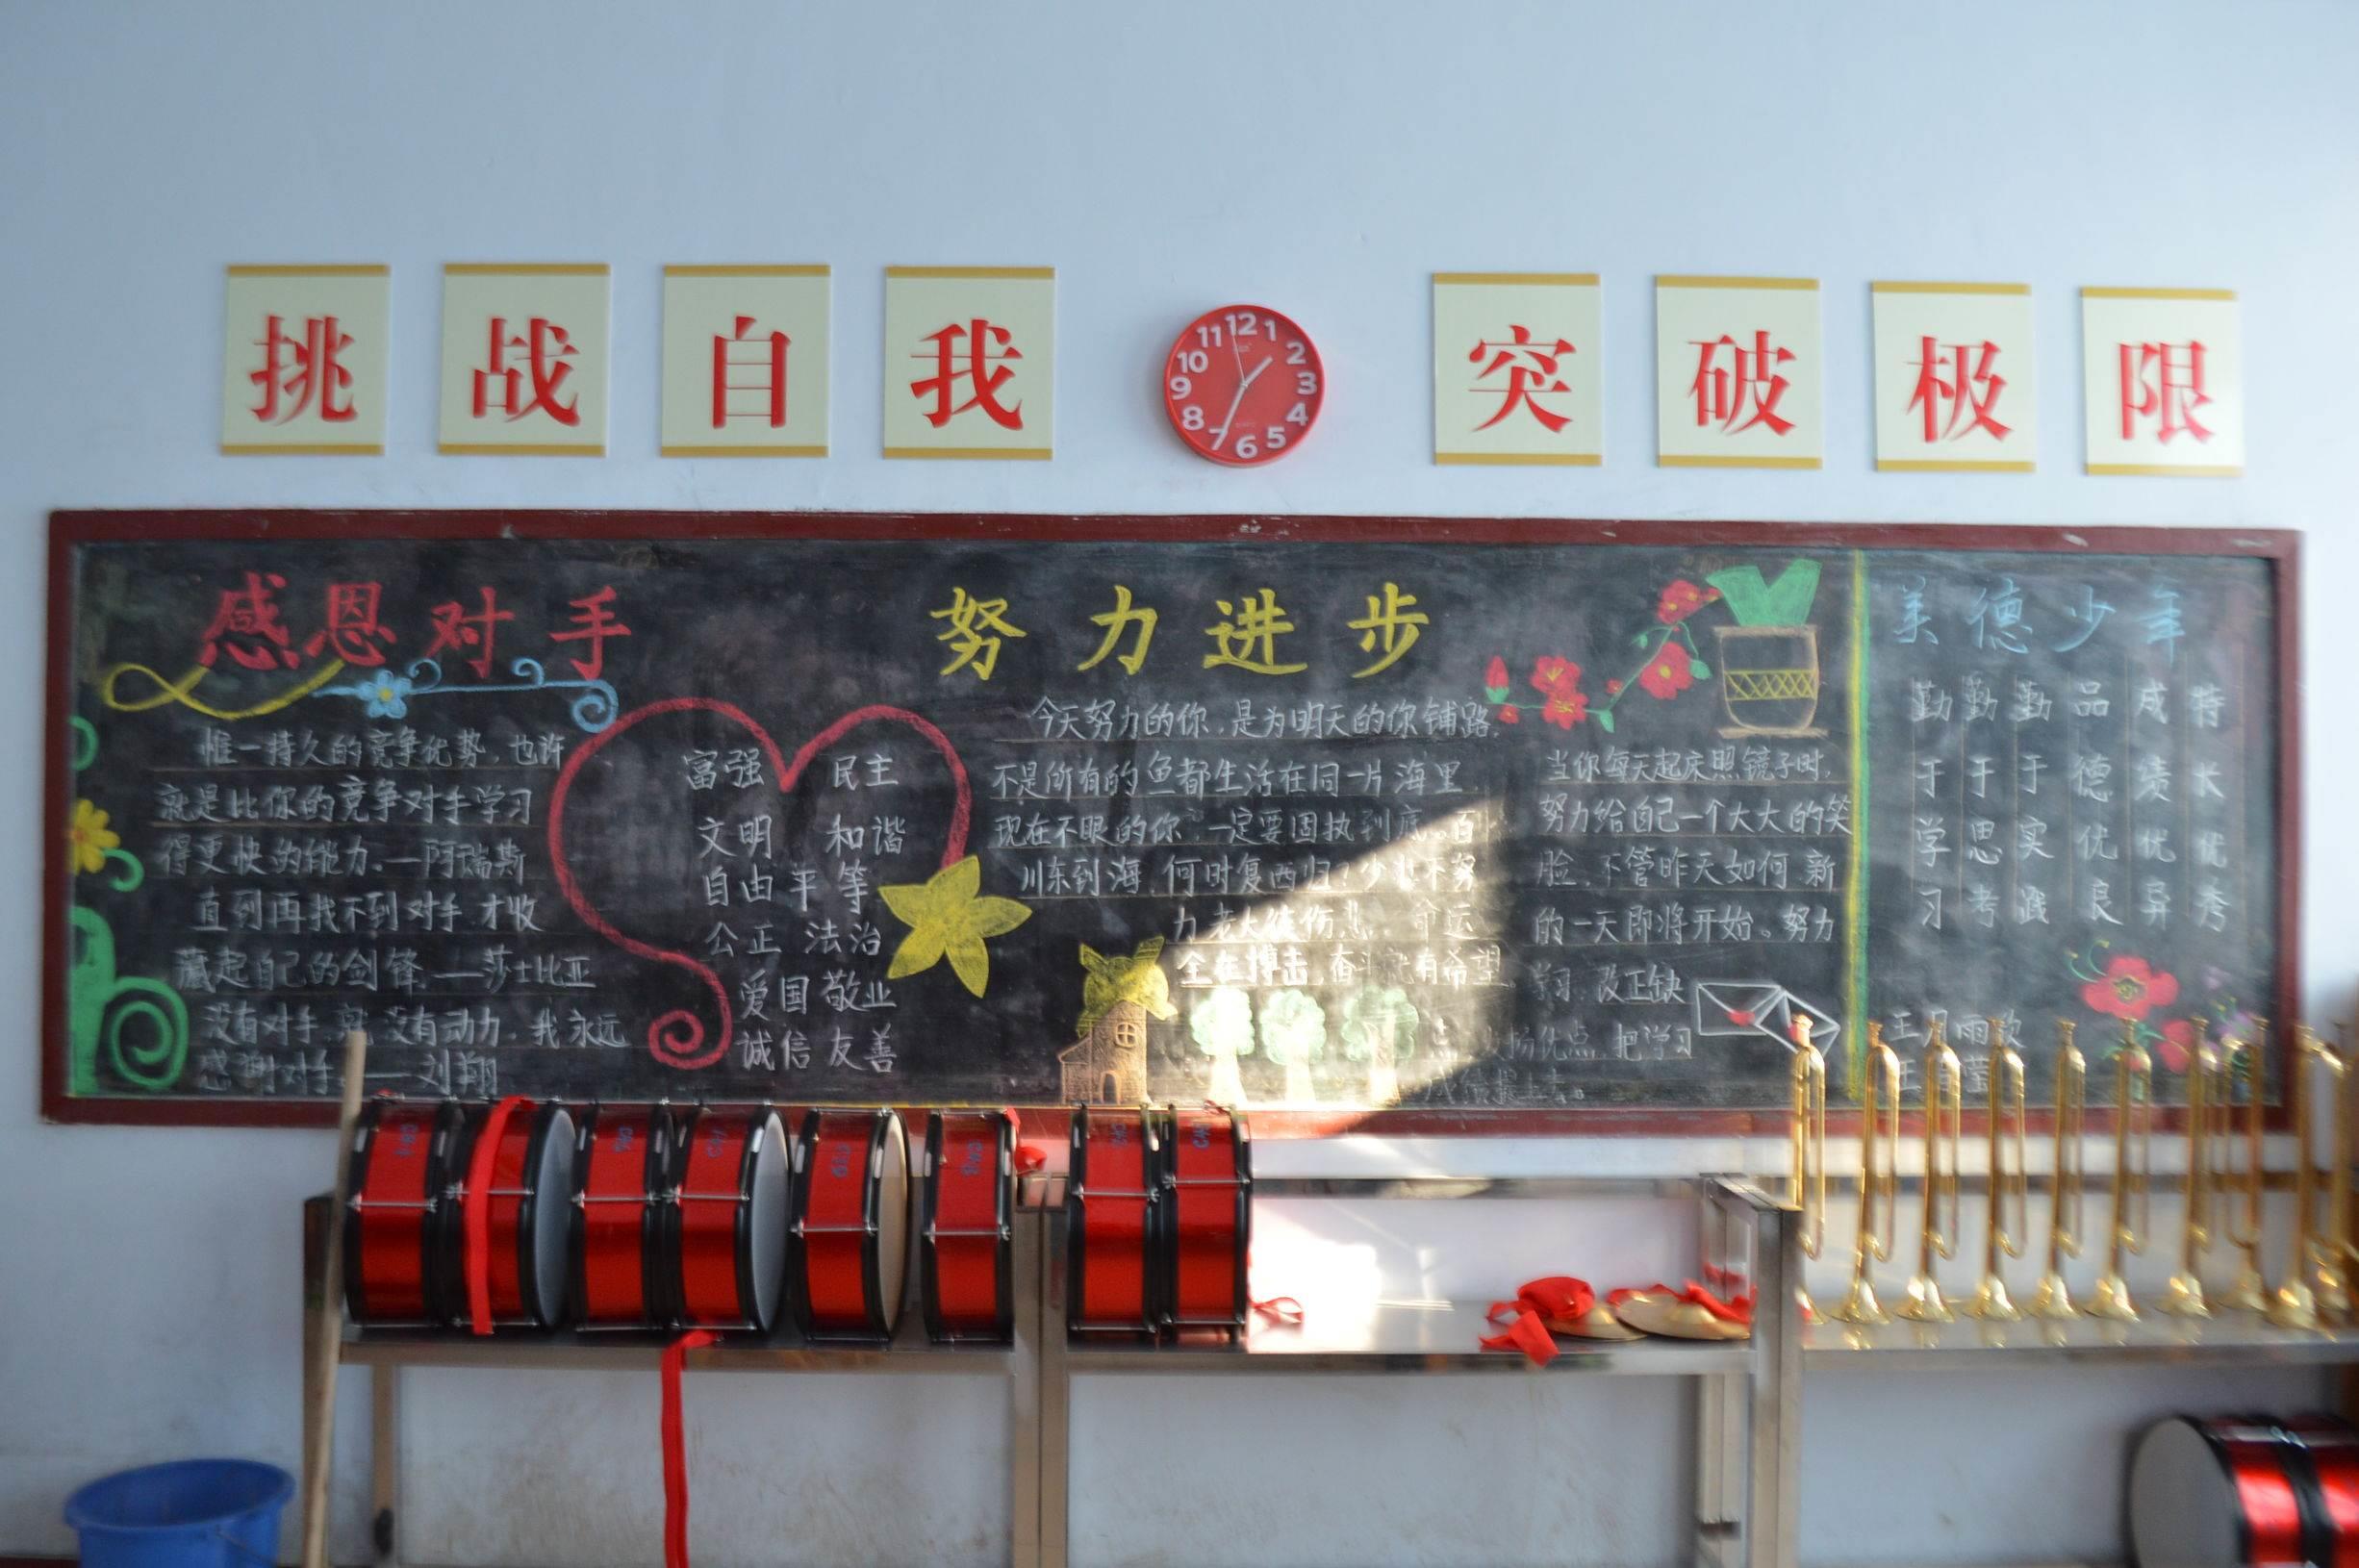 挑战自我
12
1
2
3
4
5
6
7
8
9
10
11
突破极限
感恩对手
惟一持久的竞争优势,也许
就是比你的竞争对手学习
得更快的能力.—阿瑞斯
直到再找不到对手.才收
藏起自己的剑锋.——莎士比亚
没有对手,就没有动力.我永远
感谢对手.——刘翔
富强 民主
文明 和谐
自由 平等
公正 法治
爱国 敬业
诚信 友善
努力进步
今天努力的你,是为明天的你铺路.
不是所有的鱼都生活在同一片海里.
现在不眠的你,一定要固执到底。百
川东到海,何时复西归?少壮不努
力老大徒伤悲.命运
全在搏击,奋斗就有希望
当你每天起床照镜子时,
努力给自己一个大大的笑
脸.不管昨天如何 新
的一天即将开始。努力
学习.改正缺
点 发扬优点 把学习
美德少年
勤于学习
勤于思考
勤于实践
品德优良
成绩优异
特长优秀
王 雨
王